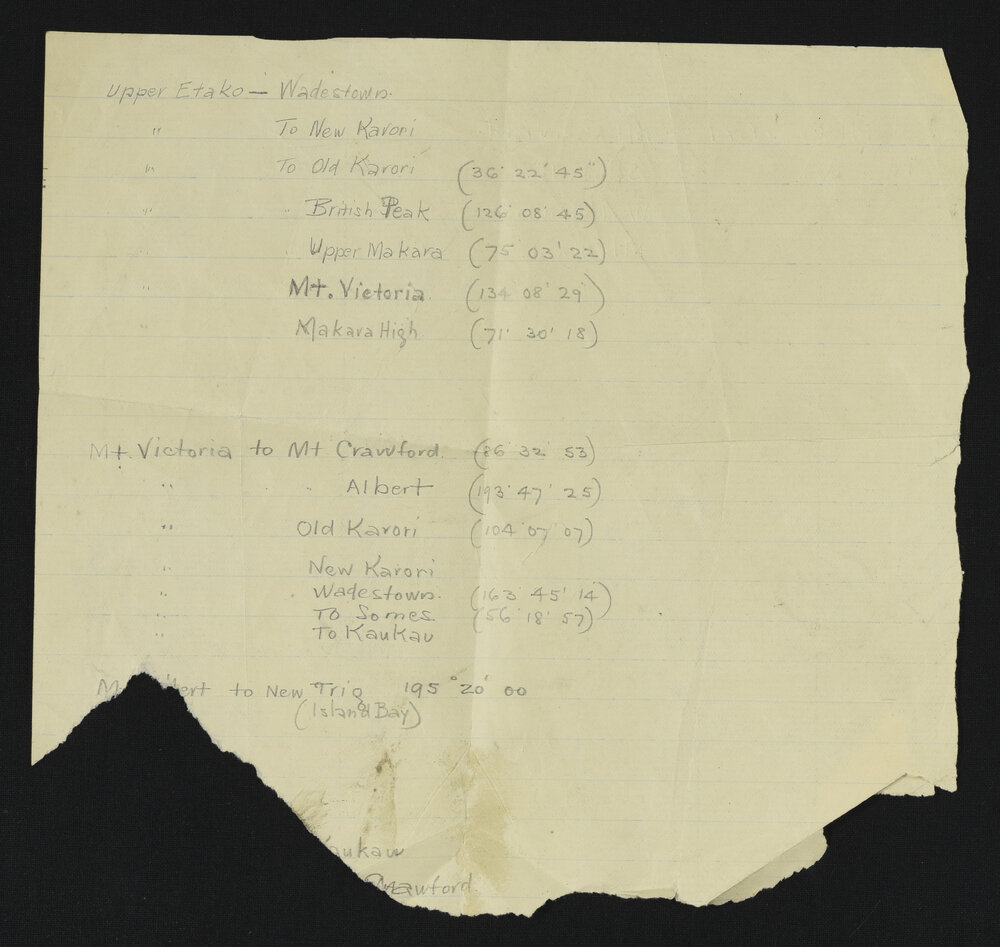 Upper Etako — Wadestown.
" To New Karori
" To Old Karori (36° 22' 45")
" " British Peak (126° 08' 45)
" Upper Makara (75° 03' 22)
" Mt. Victoria (134° 08' 29)
Makara High (71° 30' 18)
Mt. Victoria to Mt Crawford. (86° 32' 53)
" " Albert (193° 47' 25)
" Old Karori (104° 07' 07)
" New Karori
" Wadestown. (163° 45' 14)
" To Somes. (56° 18' 57)
" To Kaukau
M bert to New Trig 195° 20' 00
(Island Bay)
aukau
Crawford.